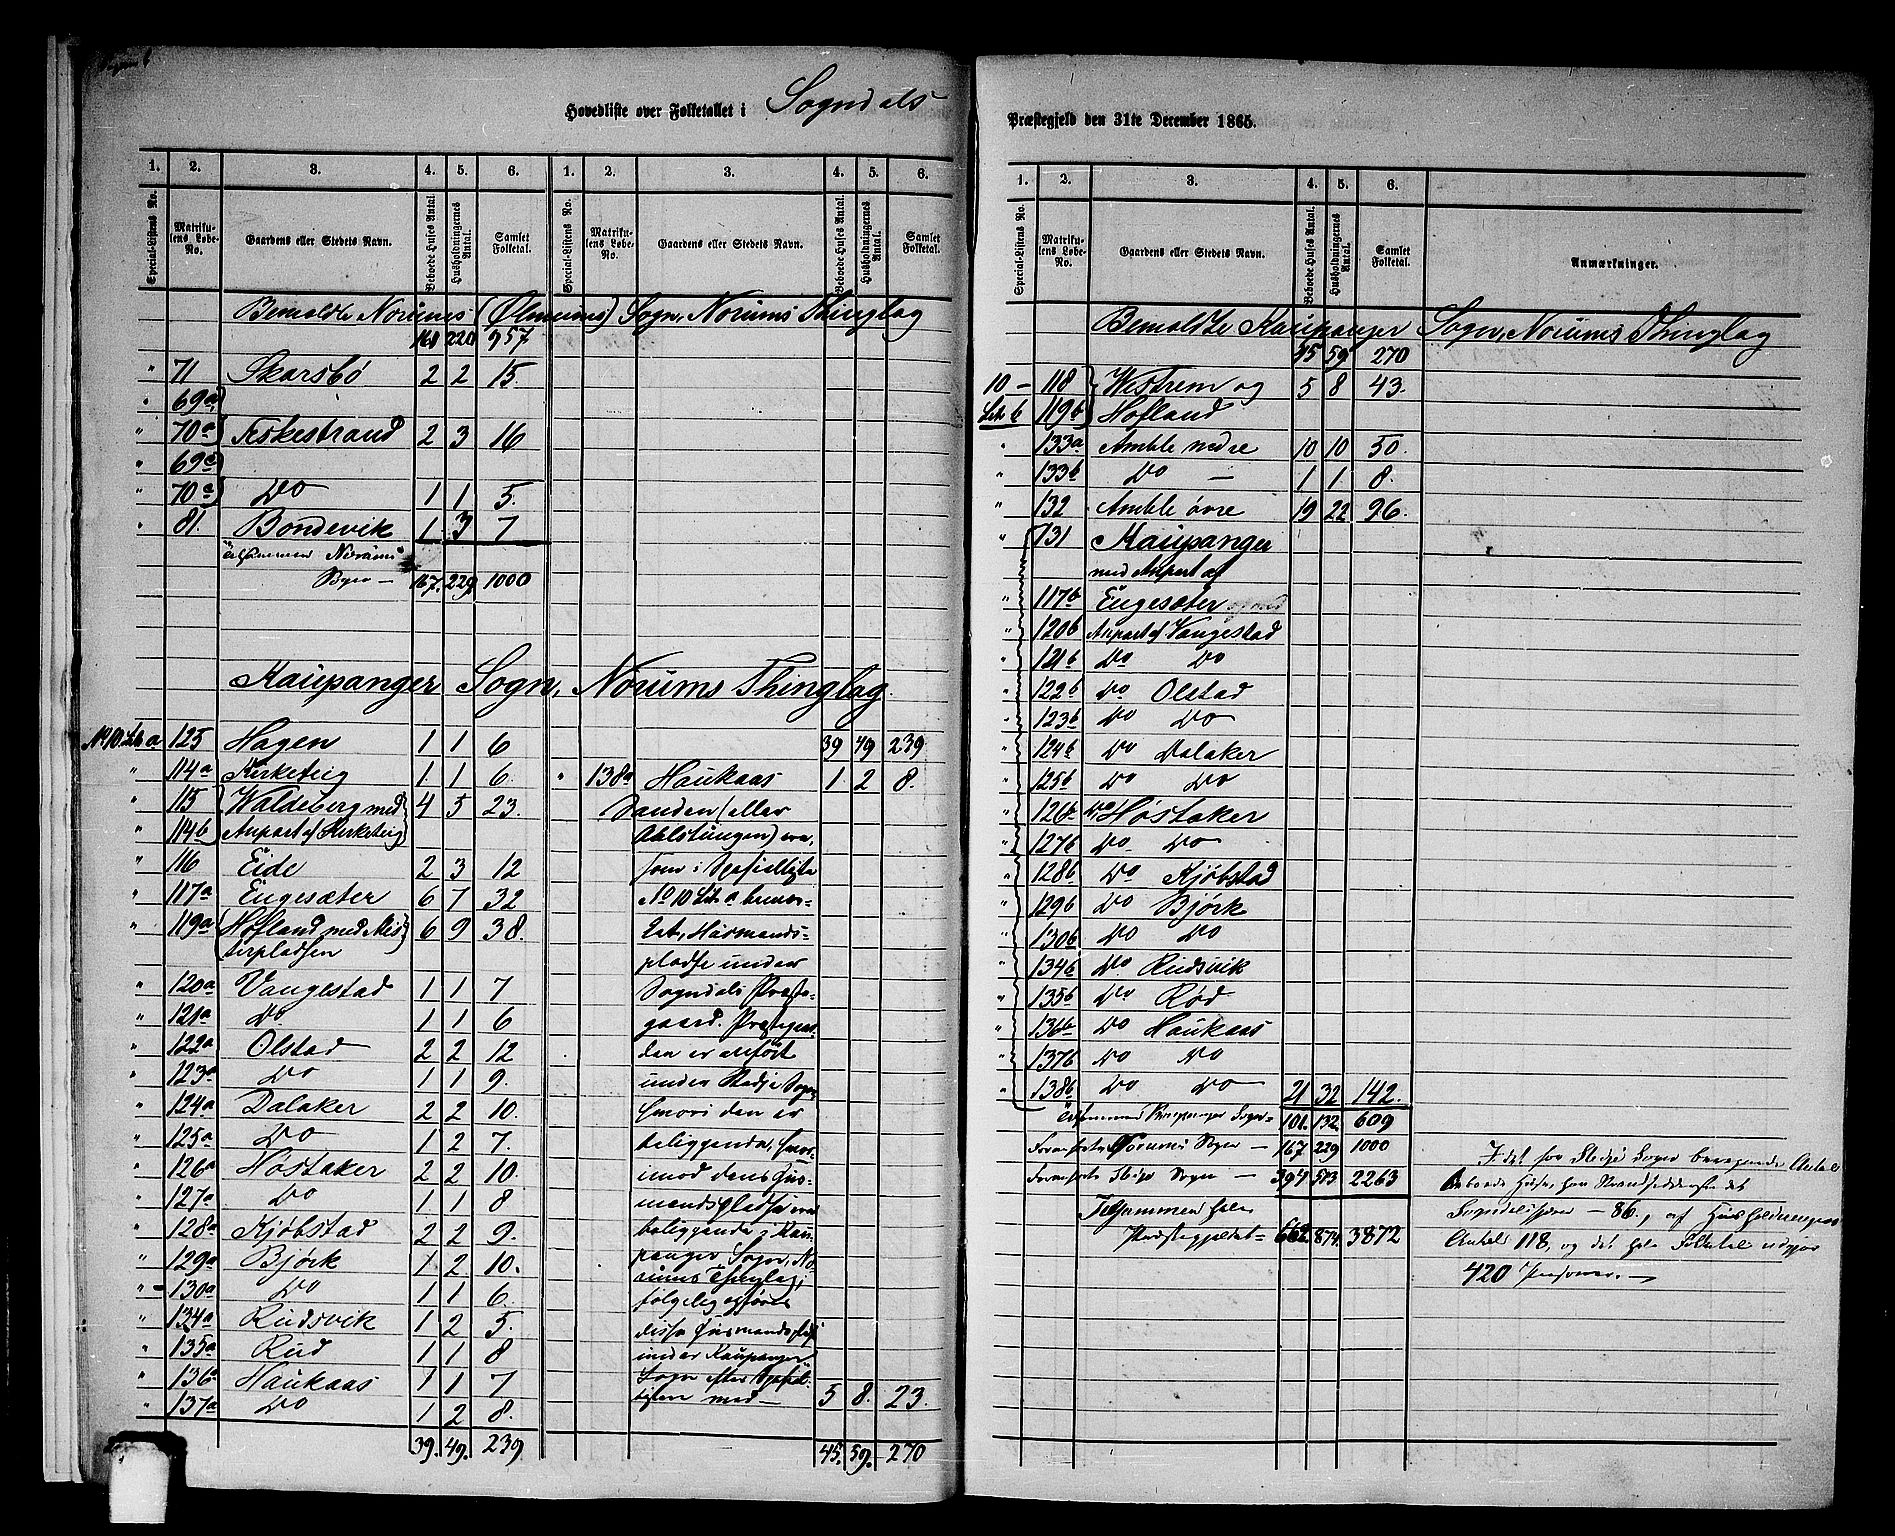 Hovedliste over Folketallet i Sogndals
1. 2. 3. 4. 5. 6. 1. 2. 3. 4. 5. 6.
Special-Listens No. Matrikulens Løbe-No. Gaardens eller Stedets Navn. Beboede Huses Antal. Husholdningernes Antal. Samlet Folketal. Special-Listens No. Matrikulens Løbe-No. Gaardens eller Stedets Navn. Beboede Huses Antal. Husholdningernes Antal. Samlet Folketal.
Bemeldte Norums (Olmeims) Sogn, Norums Thinglag
160 220 957
" 71 Skarsbø 2 2 15.
" 69a
" 70a Feskestrand 2 3 16
" 69c
" 70c Do 1 1 5.
" 81. Bondevik 1 3 7
Tilsammen Norums
Sogn — 167. 229 1000
Kaupanger Sogn, Norums Thinglag.
No 10 Lit. a 125 Hagen 1 1 6
" 114a Kirketeig 1 1 6.
" 115 Waldeberg med 4 5 23.
" 114b Anpart af Kirketeig
" 116 Eide 2 3 12
" 117a Engesæter 6 7 32
" 119a Hofland med Mis 6 9 38.
terpladsen
" 120a Vangestad 1 1 7
" 121a Do. 1 1 6
" 122a Olstad 2 2 12
" 123a Do 1 1 9.
" 124a Dalaker 2 2 10.
" 125a Do 1 2 7.
" 126a Høstaker 2 2 10.
" 127a Do 1 1 8
" 128a Kjøbstad 2 2 9.
" 129a Bjørk 1 2 10.
" 130a Do 1 1 6.
" 134a Rudsvik 1 2 5.
" 135a Rud 1 1 8
" 136a Haukaas 1 1 7
" 137a Do 1 2 8.
39. 49. 239
39 49 239
" 138a Haukaas 1. 2 8.
(eller
som i
No 10 Lit. a bemær-
ket, Husmands-
pladse under
Sogndals Præste-
gaard.
den er anført
under Stedje Sogn
hvori den er
beliggende, hvor-
imod dens Hus-
mandspladse ere
beliggende i Kau-
panger Sogn, No-
rums Thinglag,
følgelig opføres
disse Husmandspladse
under Kaupanger
Sogn efter
med — 5 8. 23.
45. 59. 270
Præstegjeld den 31te December 1865.
1. 2. 3. 4. 5. 6.
Special-Listens No. Matrikulens Løbe-No. Gaardens eller Stedets Navn. Beboede Huses Antal. Husholdningernes Antal. Samlet Folketal. Anmærkninger.
Bemeldte Kaupanger Sogn, Norums Thinglag
45 59 270
10 — 118 Westrem og 5 8 43.
Lit. b 119b Hofland
" 133a Amble nedre 10 10 50.
" 133b Do — 1 1 8.
" 132 Amble øvre 19 22 96.
" 131 Kaupanger
med Anpart af
" 117b Engesæter
" 120b Anpart af Vangestad
" 121b Do Do
" 122b Do Olstad
" 123b Do Do
" 124b Do Dalaker
" 125b Do Do
" 126b Do Høstaker
" 127b Do Do
" 128b Do Kjøbstad
" 129b Do Bjørk
" 130b Do Do
" 134b Do. Rudsvik
" 135b Do Rød
" 136b Do Haukaas
" 137b Do Do
" 138b Do Do 21 32 142.
Tilsammen Kaupanger Sogn = 101. 132 609
Norums Sogn — 167 229 1000
Sogn — 394 513 2263
Tilsammen hele
Præstegjeldet = 662. 874. 3872
I det for Stedje Sogn Antal
beboede Huse, har Strandstedet
Sogndalsfjæren — 86., af Husholdningers
Antals 118, og det hele Folketal udgjør
420 Personer. —